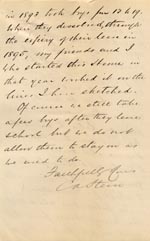 in 1892 took boys from 12 to 19.
When they dissolved, through
the expiry of their lease in
1895, my friends and I
who started this Home in
that year worked it on the
lines I have sketched.
Of course we still take
boys after they leave
school but we do not
allow them to stay on as
we used to do.
Faithfully yours